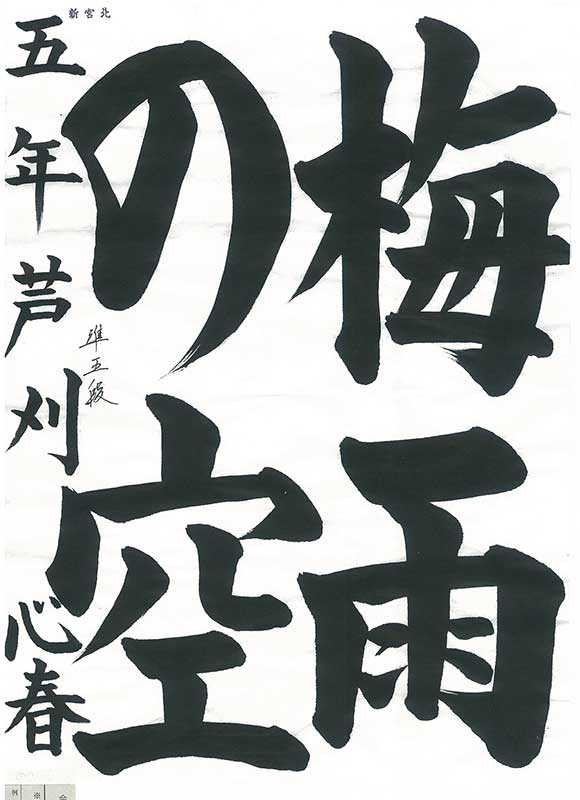 梅雨
の空
準五段
五年芦刈心春
新宮北
例
※